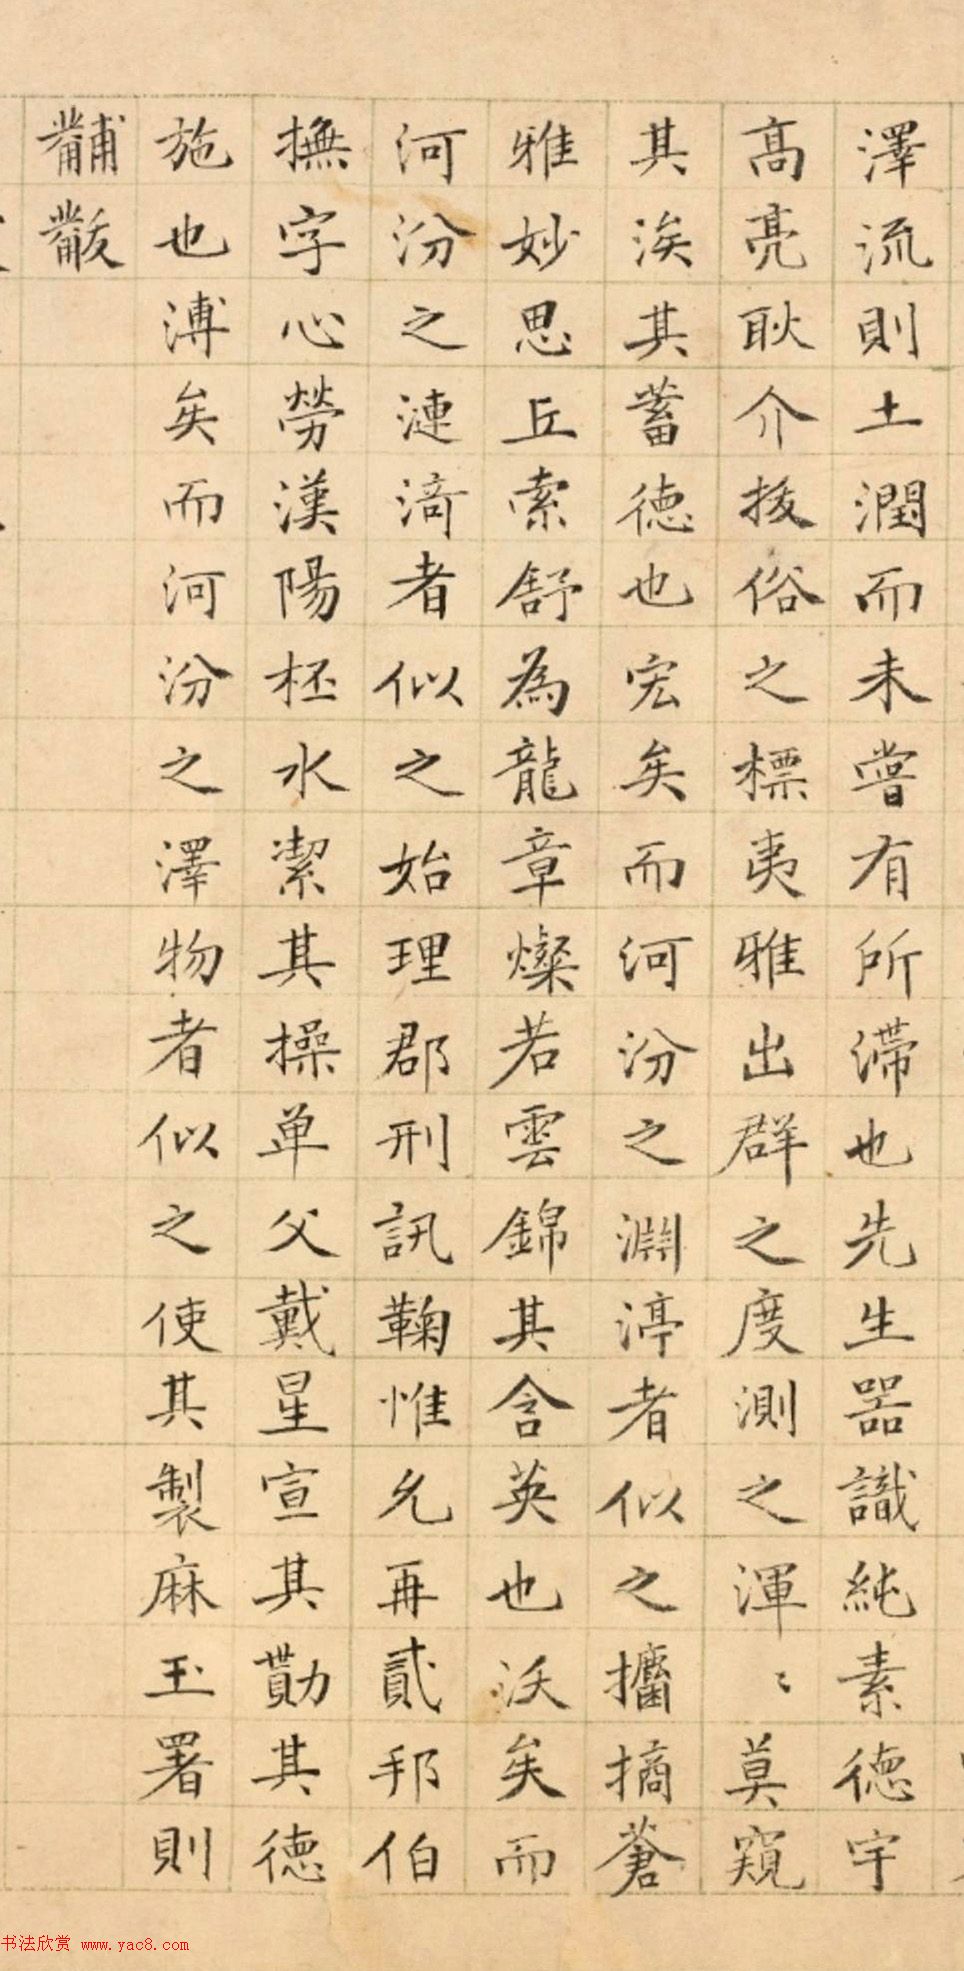 澤流則土潤而未嘗有所滯也先生器識純素德宇
高亮耿介拔俗之標夷雅出群之度測之渾〻莫窺
其涘其蓄德也宏矣而河汾之淵渟者似之擂摘蒼
雅妙思丘索舒為龍章燦若雲錦其含英也沃矣而
河汾之漣漪者似之始理郡刑訊鞠惟允再貳邦伯
撫字心勞漢陽柸水潔其操单父戴星宣其勩其德
施也溥矣而河汾之澤物者似之使其製麻玉署則
黼黻
书法欣赏 www.yac8.com